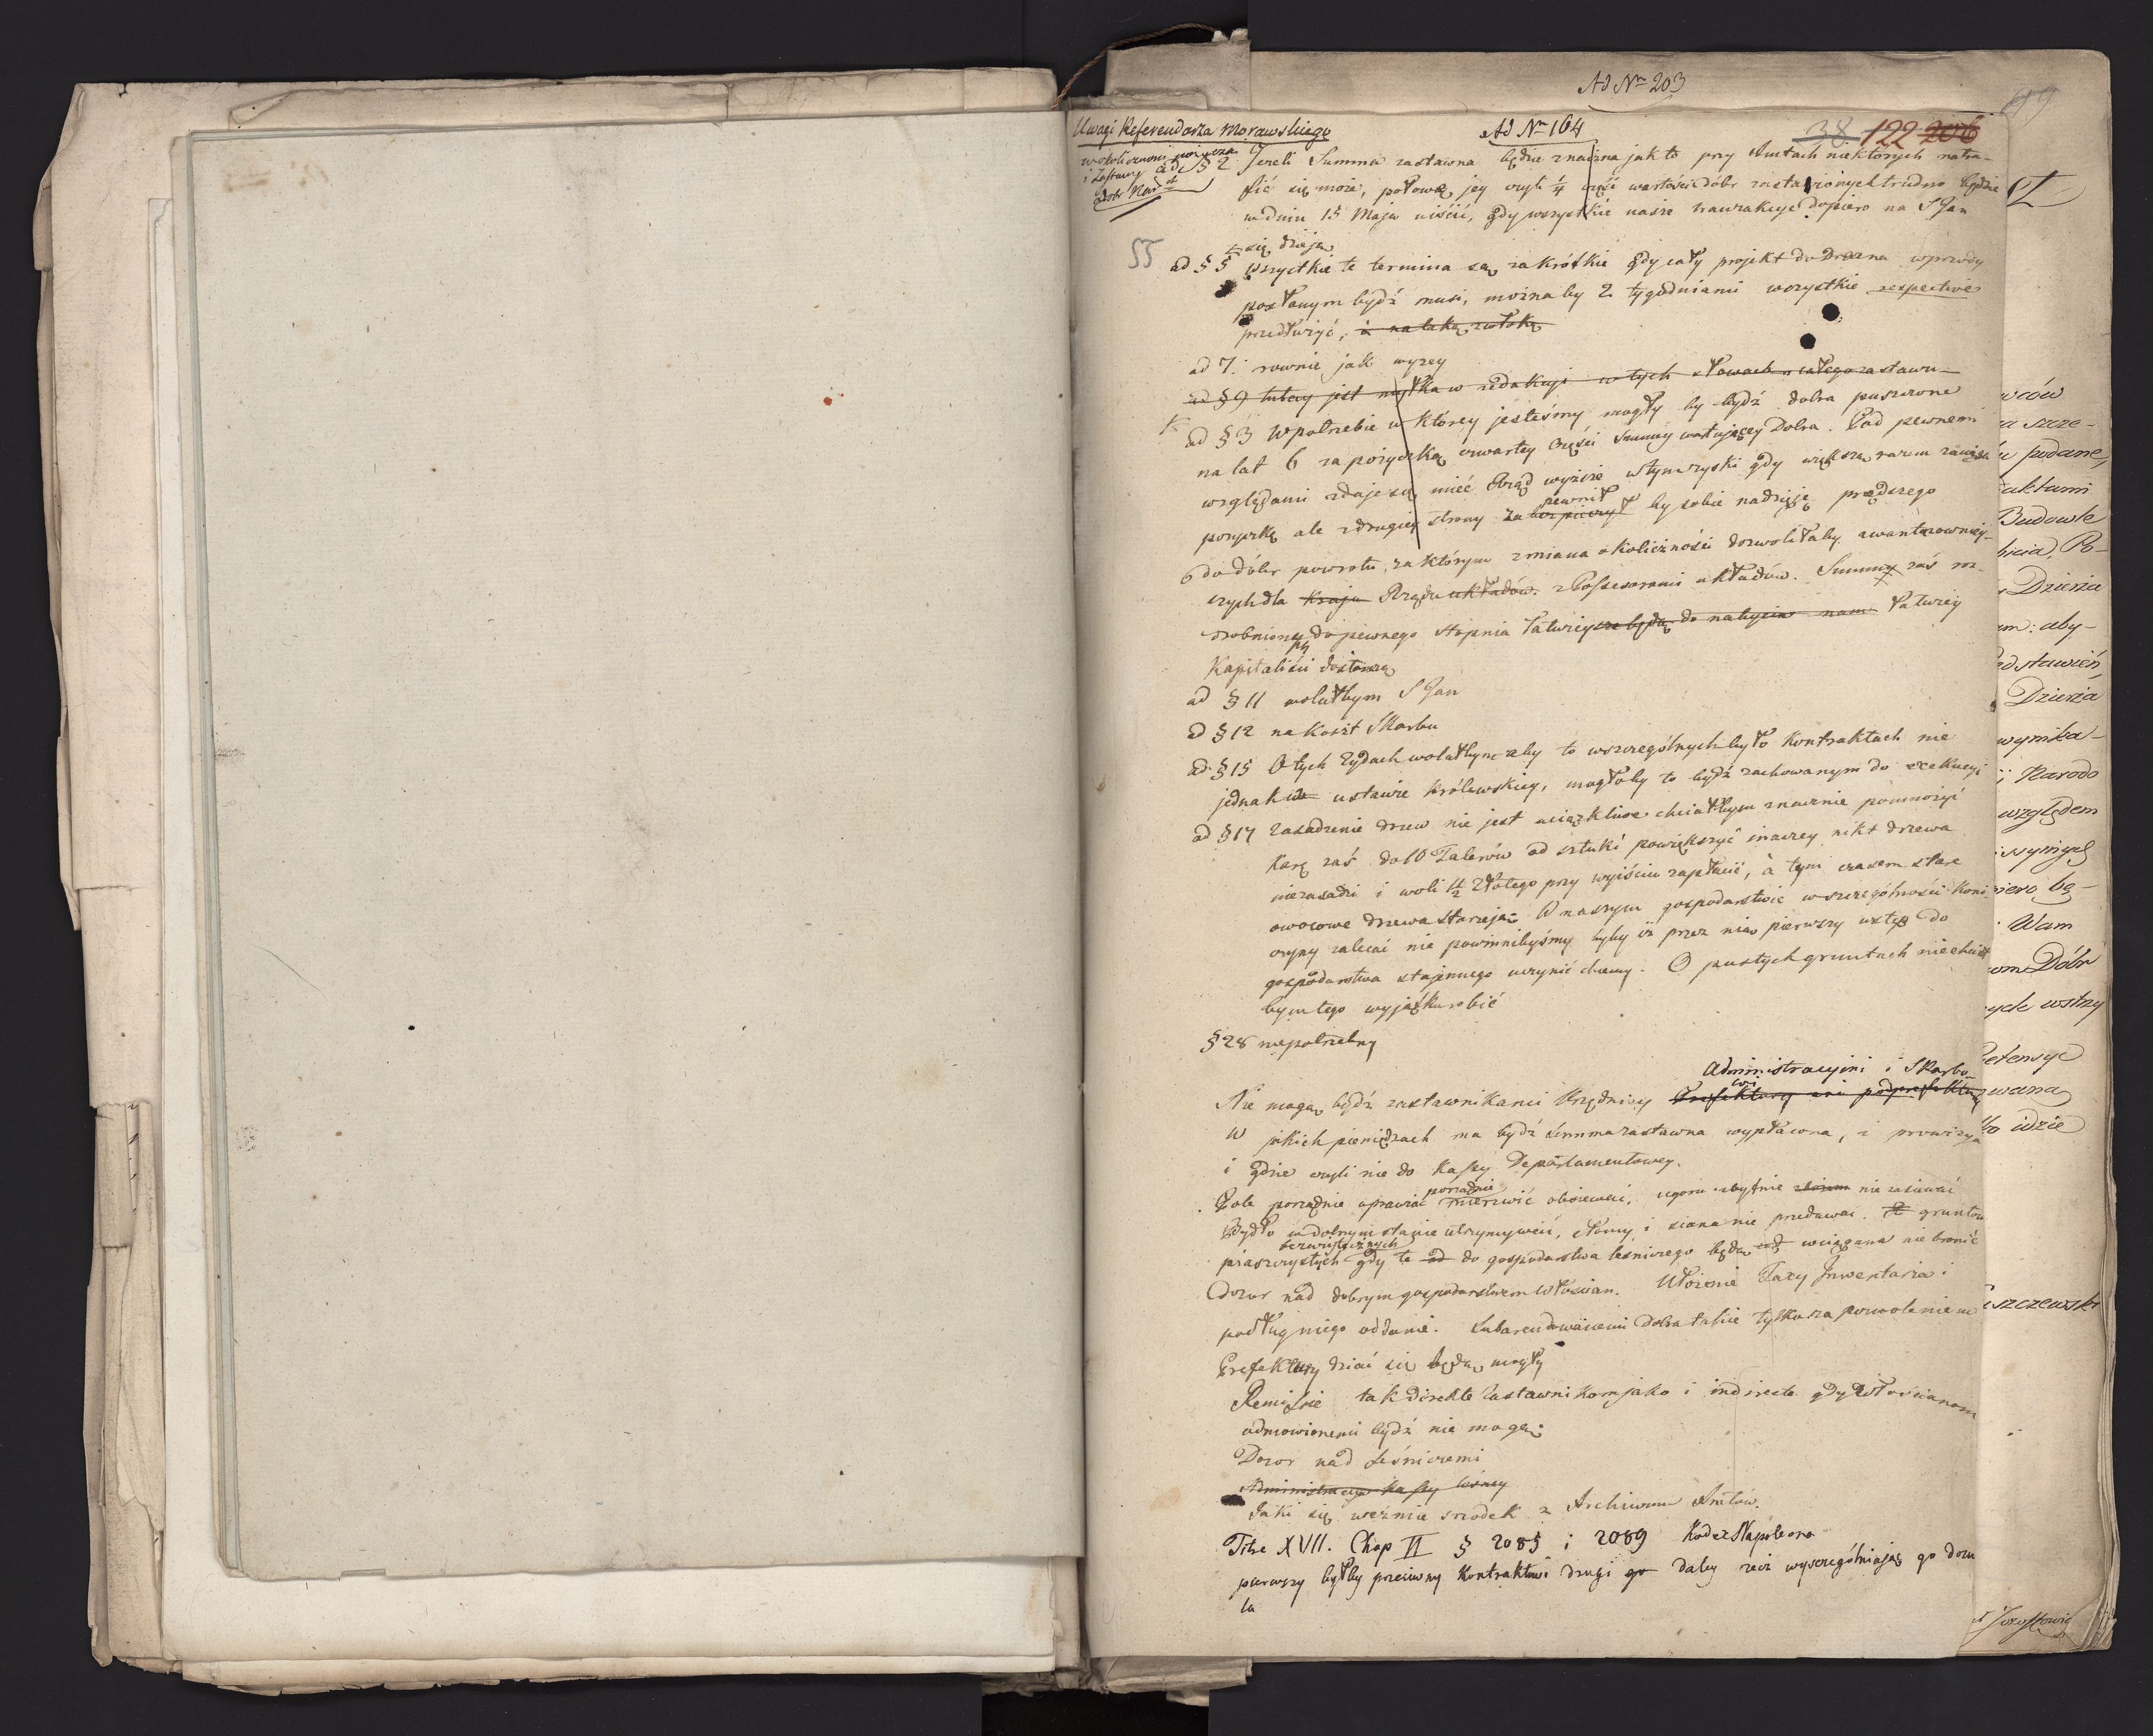 Ad Nro 203
Uwagi Referendarza Morawskiego
Ad Nro 164
38 122 206
w okoliczności
i Zastawy
dobr Nar
ad § 2 Jeżeli Summa zastawna będzie znaczna jak to przy Amtach niektorych natra-
fić się może, połowę jey czyli 1/4 część wartości dóbr zastawionych trudno będzie
w dniu 15 Maja uiścić, gdy wszystkie nasze tranzakcye dopiero na S Jan
się dzieją
55
ad § 5 wszystkie te termina są za krótkie gdy cały projekt do Drezna wprzody
posłanym bydź musi, można by 2 tygodniami wszystkie respective
przedłużyć, i na taką zwłokę
ad 7. rownie jak wyzey
ad § 9 tutay jest myłka w redakcyi w tych słowach całego zastawu
ad § 3 W potrzebie w ktorey jesteśmy mogły by bydź dobra puszczone
na lat 6 za pożyczką czwartey części Summy wartującey Dobra. Pod pewnemi
względami zdaje się mieć Rząd wyższe w tym zyski gdy większą razem zaciąga
pożyczkę ale z drugiey strony za pewnił by sobie nadzieję prędszego
do dóbr powrotu, za którym zmiana okoliczności dozwoliłaby awantazowniey-
szych dla Kraju Rządu układów. z Possesorami układów. Summy zaś roz-
drobnione do pewnego stopnia łatwiey do nabycia nam łatwiey
Kapitaliści dostarczą
ad § 11 wolałbym S Jan
ad § 12 na koszt Skarbu
ad § 15 O tych Żydach wolałbym aby to w szczególnych było Kontraktach nie
jednak w ustawie królewskiey, mogłoby to bydź zachowanym do exekucyi
ad § 17 Zasadzenie drzew nie jest uciążliwe chciałbym znacznie pomnożyć
Karę zaś do 10 Talerów od sztuki powiększyć inaczey nikt drzewa
niezasadzi i woli 1/2 Złotego przy wyiściu zapłacić, a tym czasem stare
owocowe drzewa starzeją. W naszym gospodarstwie w szczególności Koni-
czyny zalecać nie powinnibyśmy byby iż przez nią pierwszy wstęp do
gospodarstwa stajennego uczynić chcemy. O pustych gruntach niechciał
bym tego wyjątku robić
§ 28 niepotrzebny
Administracyjni i Skarbo-
wi
Nie mogą bydź zastawnikami Urzędnicy Prefektury ani podprefektury
W jakich pieniędzach ma bydź Summa zastawna wypłacona, i prowizya
i gdzie czyli nie do Kassy Departamentowey.
porządnie
Pole porządnie uprawiać mierzwić obsiewać, ugoru zbytnie nie zasiewać
Bydło w dobrym stanie utrzymywać, słomy i siana nie przedawać. gruntow
bezużytecznych
piaszczystych gdy te do gospodarstwa leśniczego będą wciągane nie bronić
Dozor nad dobrym gospodarstwem Włościan. Ułożenie Taxy Inwentarza i
podług niego oddanie. Subarendowaniem Dobra takie tylko za pozwoleniem
Prefektury dziać się będą mogły
Remissie tak directe Zastawnikom jako i indirecte gdy Włościanom
odmowionemi bydź nie mogą.
Dozor nad Leśniczemi
Administracya Kassy leśney
Jaki się weźmie srodek z Archiwum Amtów.
Titre XVII. Chap II § 2085 i 2089 Kodex Napoleona
pierwszy byłby przeciwny Kontraktowi drugi go daley recz wyszczególniając go dozu
la
wców
podane,
aktami
Budowle
Po-
Dzierża
aby-
Dzierża
wynika-
Narodo
względem
Wam
Dóbr
wstrzy
idzie